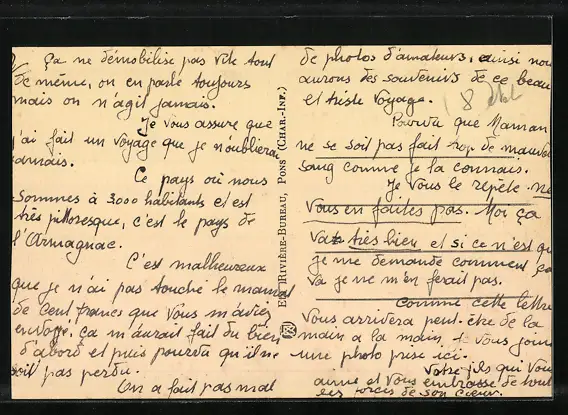 Ça ne démobilise pas vite tout
de même, on en parle toujours
mais on n'agit jamais.
Je vous assure que
j'ai fait un voyage que je n'oublierai
jamais.
Ce pays où nous
sommes à 3000 habitants et est
très pittoresque, c'est le pays de
l'Armagnac.
C'est malheureux
que je n'ai pas touché le mandat
de Cent francs que vous m'aviez
envoyé, ça m'aurait fait du bien
d'abord et puis pourvu qu'il ne
soit pas perdu.
On a fait pas mal
Ed. Rivière-Bureau, Pons (Char.-Inf.)
de photos d'amateurs, ainsi nous
aurons des souvenirs de ce beau
et triste voyage.
8
Pourvu que Maman
ne se soit pas fait trop de mauvais
sang comme je la connais.
Je vous le répète ne
vous en faites pas. Moi ça
va très bien et si ce n'est qu
je me demande comment ça
va je ne m'en ferait pas.
Comme cette lettre
vous arrivera peut-être de la
main a la main, vous joins
une photo prise ici.
Votre fils qui vous
aime et vous embrasse de toutes
les forces de son cœur.